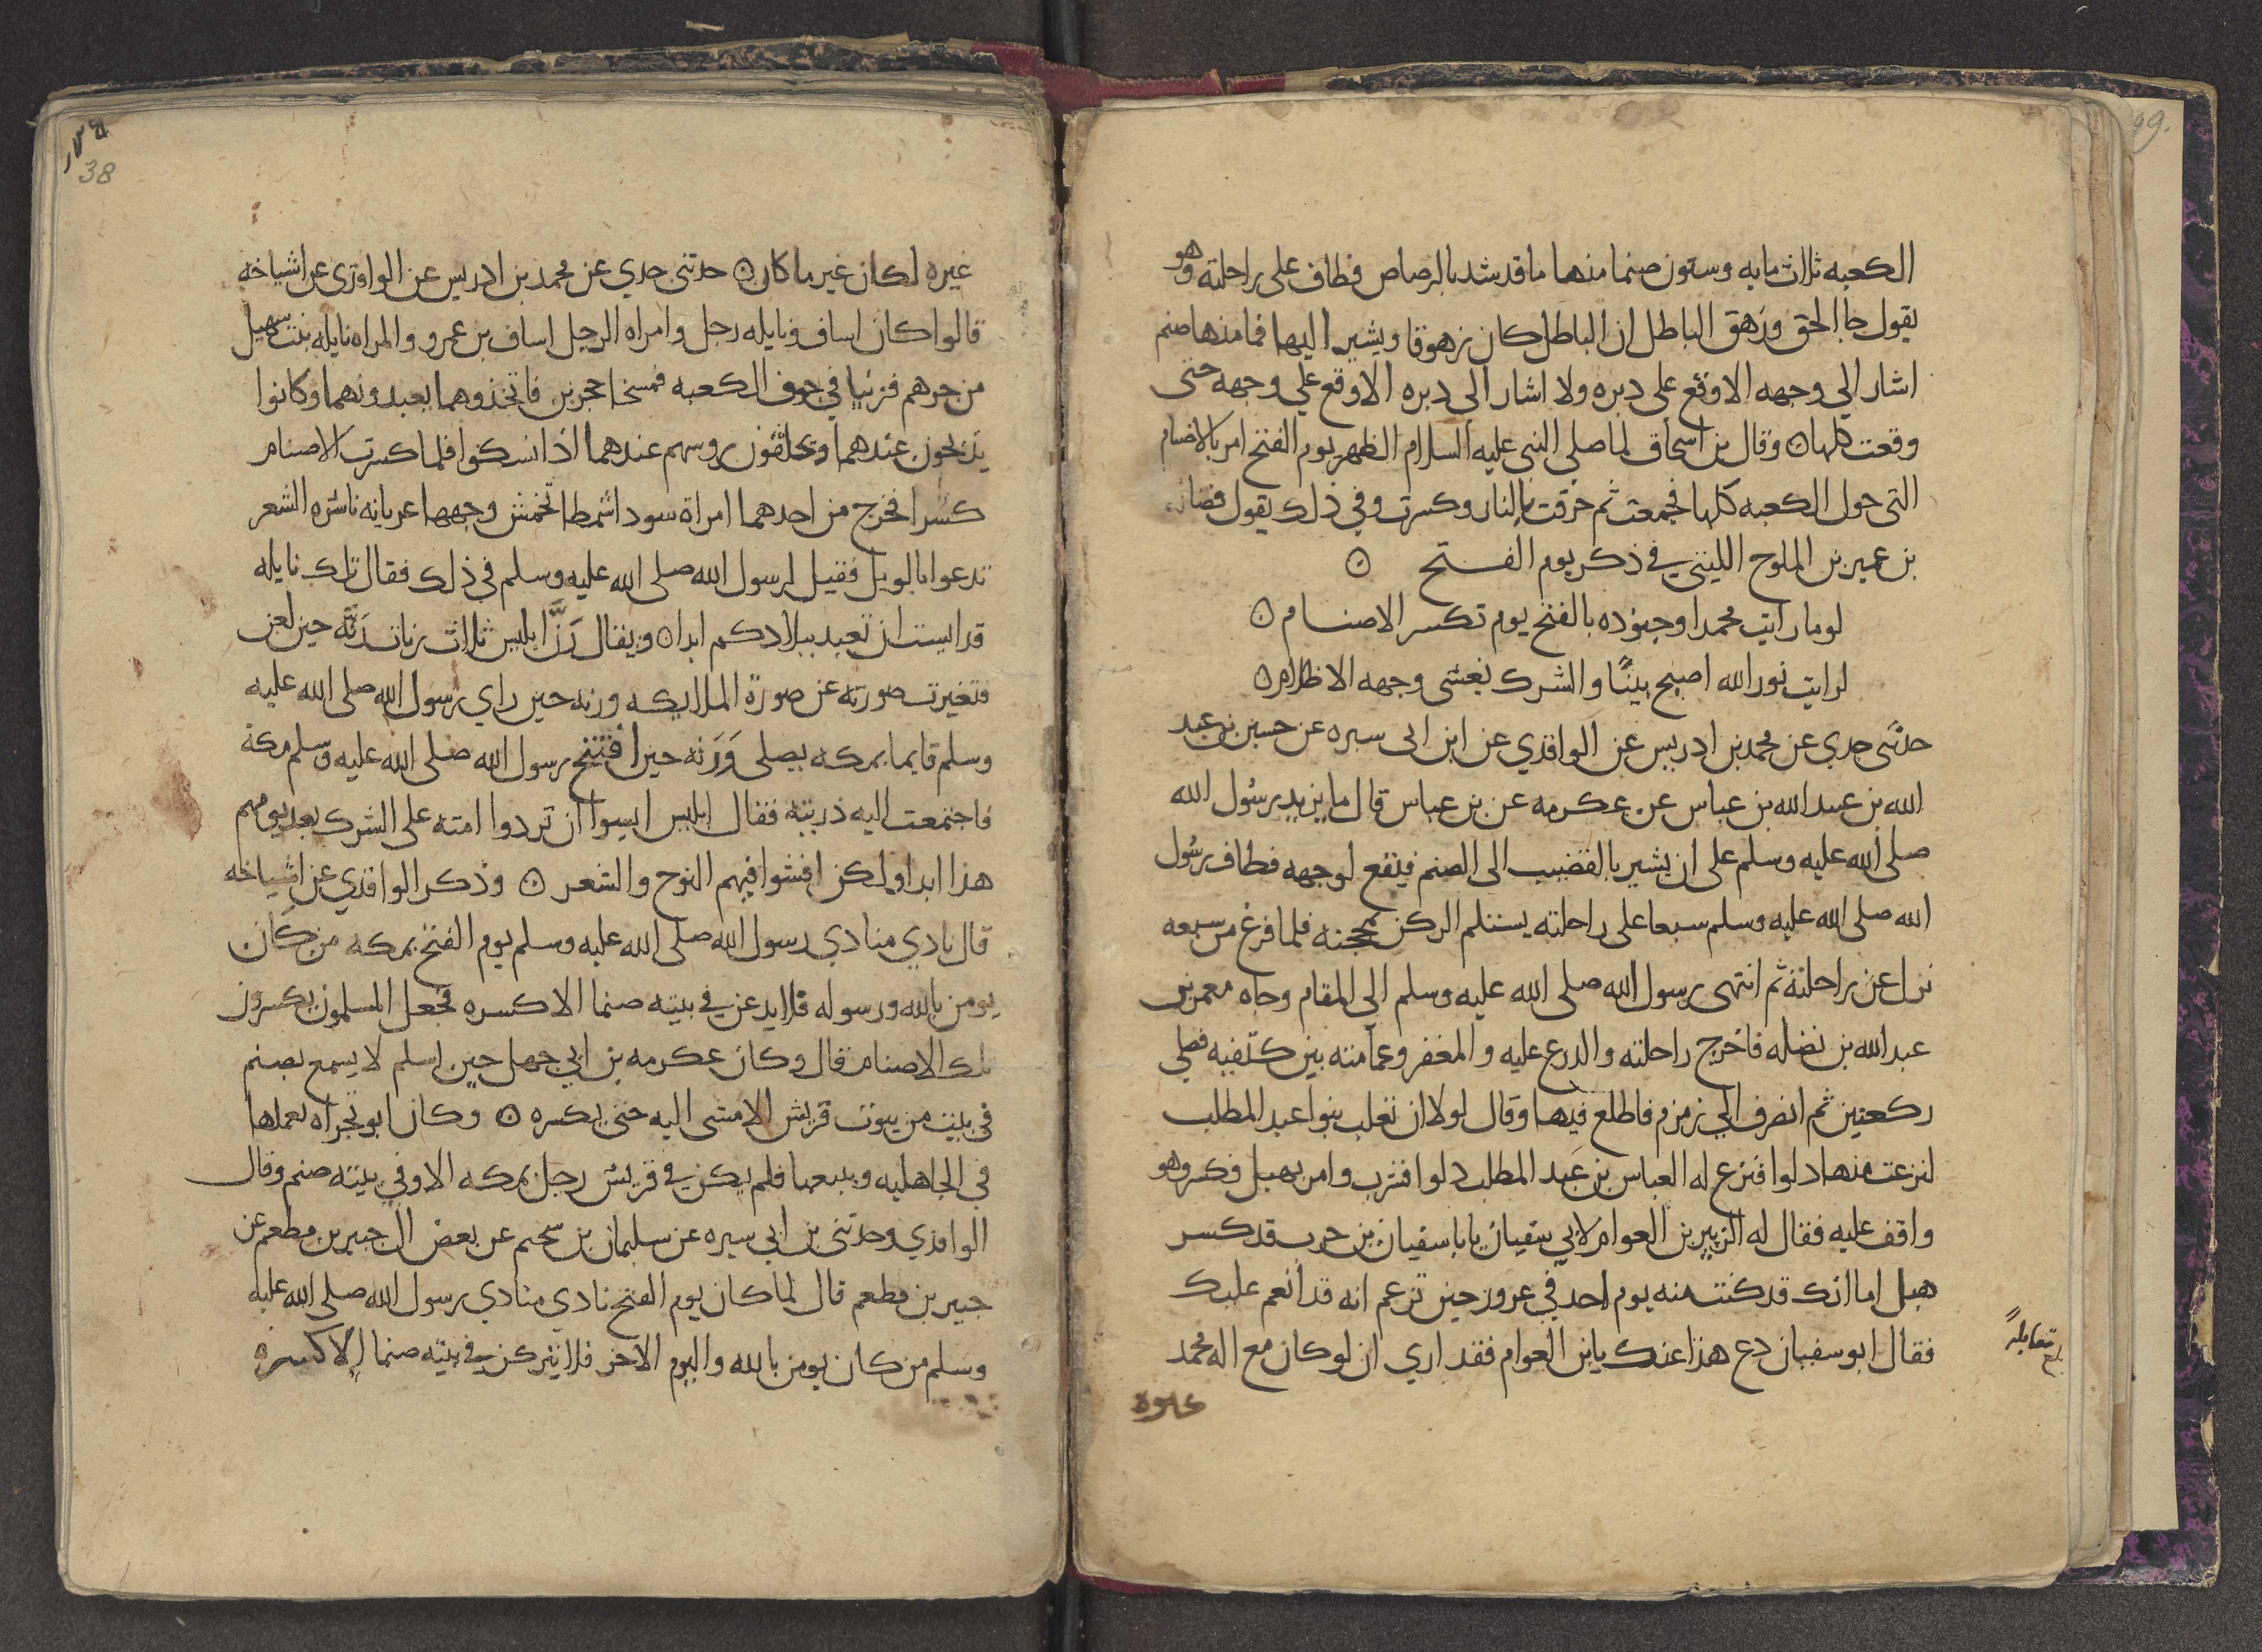 الكعبه ثلاث مايه وستون صنما منها ما قد شد بالرصاص فطاف على راحلته وهو
يقول جا الحق وزهق الباطل ان الباطل كان زهوقا ويشير اليها فما منها صنم
اشار الي وجهه الا وقع على دبره ولا اشار الي دبره الا وقع علي وجهه حتى
وقعت كلها ۞ وقال بن اسحاق لما صلى النبي عليه السلام الظهر يوم الفتح امر بالاصنام
التى حول الكعبه كلها فجمعت ثم حرقت بالنار وكسرت وفي ذلك يقول فضاله
بن عمير بن الملوح الليثي في ذكر يوم الفتح ۞
لو ما رايت محمدا وجنوده بالفتح يوم تكسر الاصنام ۞
لرايت نور الله اصبح بينًا والشرك يغشى وجهه الاظلام ۞
حدثني جدي عن محمد بن ادريس عن الواقدي عن ابن ابى سبره عن حسين بن عبد
الله بن عبيد الله بن عباس عن عكرمه عن بن عباس قال ما يزيد رسول الله
صلى الله عليه وسلم على ان يشير بالقضيب الى الصنم فيقع لوجهه فطاف رسول
الله صلى الله عليه وسلم سبعا على راحلته يستلم الركن بمحجنه فلما فرغ من سبعه
نزل عن راحلته ثم انتهى رسول الله صلى الله عليه وسلم الي المقام وجاه معمر بن
عبد الله بن نضله فاخرج راحلته والدرع عليه والمغفر وعمامته بين كتفيه فصلي
ركعتين ثم انصرف الي زمزم فاطلع فيها وقال لولا ان تغلب بنوا عبد المطلب
لنزعت منها دلوا فنزع له العباس بن عبد المطلب دلوا فشرب وامر بهبل فكسر وهو
واقف عليه فقال له الزبير بن العوام لابي سفيان يابا سفيان بن حرب قد كسر
هبل اما انك قد كنت منه يوم احد في غرور حين تزعم انه قد انعم عليك
فقال ابو سفيان دع هذا عنك يابن العوام فقد اري ان لو كان مع اله محمد
غيره
غيره لكان غير ما كان ۞ حدثنى جدي عن محمد بن ادريس عن الواقدي عن اشياخه
قالوا كان اساف ونايله رجل وامراه الرجل اساف بن عمرو والمراه نايله بنت سهيل
من جرهم فزنيا في جوف الكعبه فمسخا حجرين فاتخذوهما يعبدونهما وكانوا
يذبحون عندهما ويحلقون روسهم عندهما اذا نسكوا فلما كسرت الاصنام
كسرا فخرج من احدهما امراة سودا شمطا تخمش وجهها عريانه ناشره الشعر
تدعوا بالويل فقيل لرسول الله صلى الله عليه وسلم في ذلك فقال تلك نايله
قد ايست ان تعبد ببلادكم ابدا ۞ ويقال رَنَّ ابليس ثلاث رنات رَنَّه حين لعن
فتغيرت صورته عن صورة الملايكه ورنه حين راي رسول الله صلى الله عليه
وسلم قايما بمكه يصلى وَرَنه حين افتتح رسول الله صلى الله عليه وسلم مكة
فاجتمعت اليه ذريته فقال ابليس ايسوا ان تردوا امته على الشرك بعد يومهم
هذا ابدا ولكن افشوا فيهم النوح والشعر ۞ وذكر الواقدي عن اشياخه
قال نادي منادي رسول الله صلى الله عليه وسلم يوم الفتح بمكه من كان
يومن بالله ورسوله فلا يدعن في بيته صنما الا كسره فجعل المسلمون يكسرون
تلك الاصنام قال وكان عكرمه بن ابي جهل حين اسلم لا يسمع بصنم
في بيت من بيوت قريش الا مشى اليه حتى يكسره ۞ وكان ابو تجراه يعملها
في الجاهليه ويبيعها فلم يكن في قريش رجل بمكه الا وفي بيته صنم وقال
الواقدي وحدثني بن ابي سبره عن سليمان بن سحيم عن بعض ال جبير بن مطعم عن
جبير بن مطعم قال لما كان يوم الفتح نادي منادي رسول الله صلى الله عليه
وسلم من كان يومن بالله واليوم الاخر فلا يتركن في بيته صنما الا كسره
38